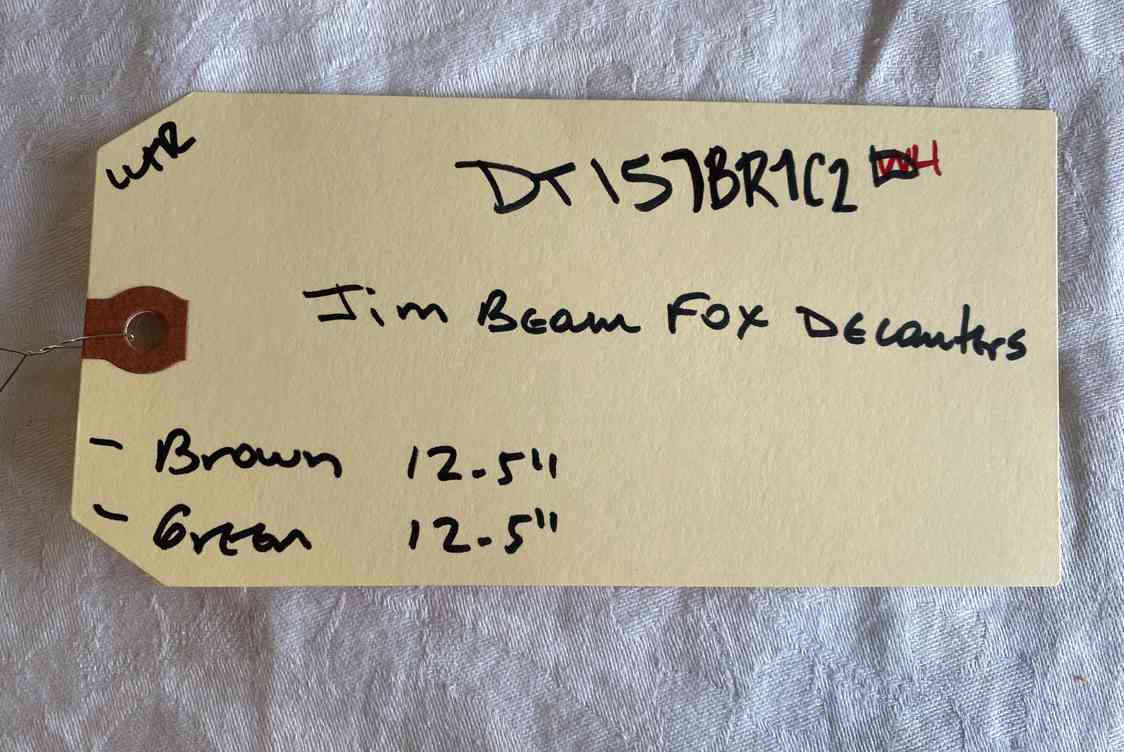 WTR
DT157BR1C2 WH
Jim Beam Fox Decanters
- Brown 12.5"
- Green 12.5"